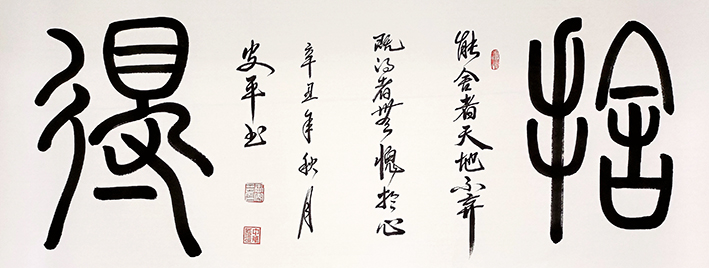 捨
能舍者天地不弃
既得者無愧於心
辛丑年秋月
平书
得